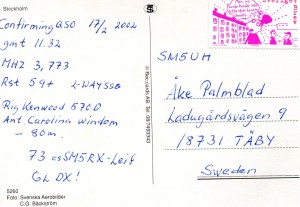 Stockholm
Confirming QSO 17/2 2002
gmt 11.32
MHz 3,773
Rst 59+ 2-WAY SSB
Rig Kenwood 570D
Ant Carolina windom
- 80m.
73 es SM5RX-Leif
GL DX!
5260
Foto: Svenska Aerobilder
C.G. Bäckström
SM5UH
Åke Palmblad
Ladugårdsvägen 9
18731 TÄBY
Sweden